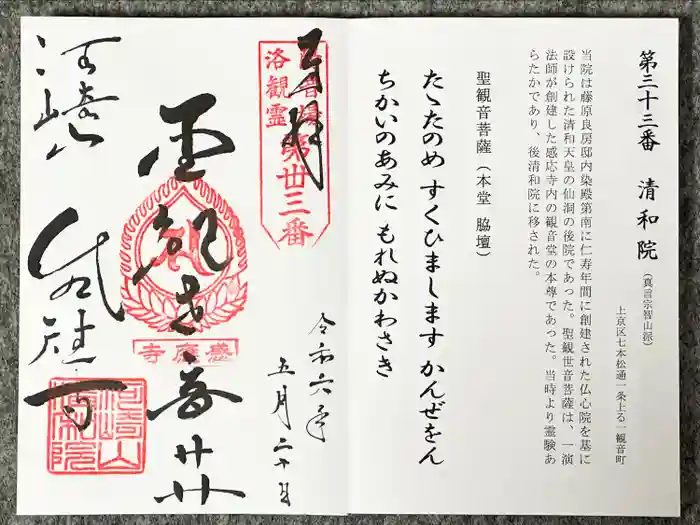 第三十三番 清和院(真言宗智山派)
上京区七本松通一条上る一観音町
当院は藤原良房邸内染殿第南に仁寿年間に創建された仏心院を基に
設けられた清和天皇の仙洞の後院であった。聖観世音菩薩は、一演
法師が創建した感応寺内の観音堂の本尊であった。当時より霊験あ
らたかであり、後清和院に移された。
聖観音菩薩(本堂 脇壇)
たゝたのめ すくひまします かんぜをん
ちかいのあみに もれぬかわさき
奉拝
洛観霊
第卅三番
令和六年
五月二十日
寺應感
河崎山
清和院